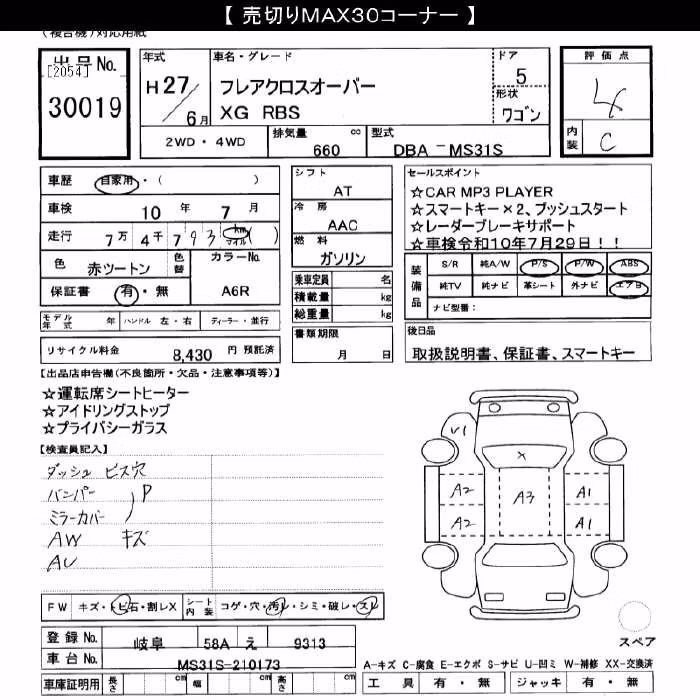 【 売切りMAX30コーナー 】
(複合機)対応用紙
出品No.
[2054]
30019
年式
H27/6月
車名・グレード
フレアクロスオーバー
XG RBS
ドア
5
形状
ワゴン
評価点
4
内装
C
2WD・4WD
排気量
660
cc
型式
DBA－MS31S
車歴
自家用・( )
車検
10 年 7 月
走行
7万 4千 793 km マイル ( )
色
赤ツートン
色替
カラーNo.
A6R
保証書
有・無
モデル年式
年
ハンドル 左・右
ディーラー・並行
リサイクル料金
8,430 円 預託済
シフト
AT
冷房
AAC
燃料
ガソリン
乗車定員 名
積載量 kg
総重量 kg
書類期限
月 日
セールスポイント
☆CAR MP3 PLAYER
☆スマートキー×2、プッシュスタート
☆レーダーブレーキサポート
☆車検令和10年7月29日！！
装備品
S/R 純A/W P/S P/W ABS
純TV 純ナビ 革シート 外ナビ エアB
ナビ型番:
後日品
取扱説明書、保証書、スマートキー
【出品店申告欄(不良箇所・欠品・注意事項等)】
☆運転席シートヒーター
☆アイドリングストップ
☆プライバシーガラス
【検査員記入】
ダッシュ ビス穴
バンパー
P
ミラーカバー
AW キズ
AU
V1
X
A2 A3 A1
A2 A1
FW キズ・トビ石・割レX
シート内装
コゲ・穴・汚レ・シミ・破レ・スレ
登録No.
岐阜 58A え 9313
車台No.
MS31S-210173
車庫証明用
長さ cm 幅 cm 高さ cm
スペア
A-キズ C-腐食 E-エクボ S-サビ U-凹ミ W-補修 XX-交換済
工具 有・無
ジャッキ 有・無